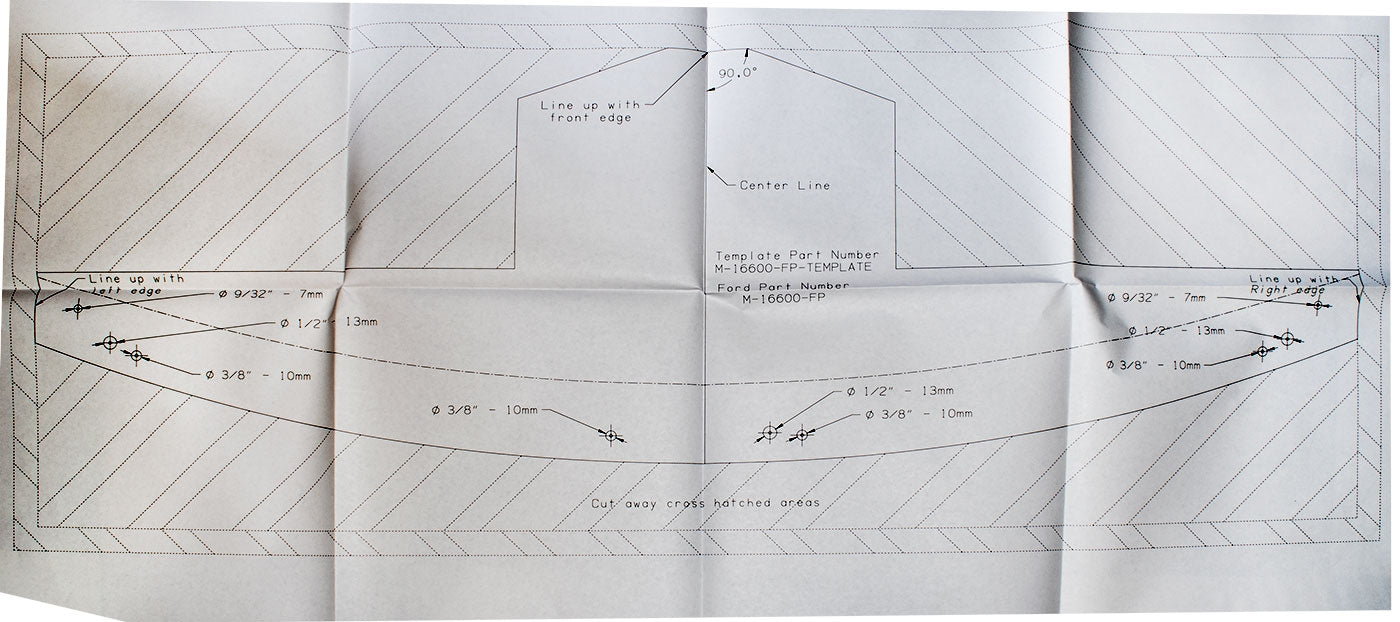 90.0°
Line up with
front edge
Center Line
Template Part Number
M-16600-FP-TEMPLATE
Ford Part Number
M-16600-FP
Line up with
Left edge
Ø 9/32" - 7mm
Ø 1/2" - 13mm
Ø 3/8" - 10mm
Line up with
Right edge
Ø 9/32" - 7mm
Ø 1/2" - 13mm
Ø 3/8" - 10mm
Ø 3/8" - 10mm
Ø 1/2" - 13mm
Ø 3/8" - 10mm
Cut away cross hatched areas